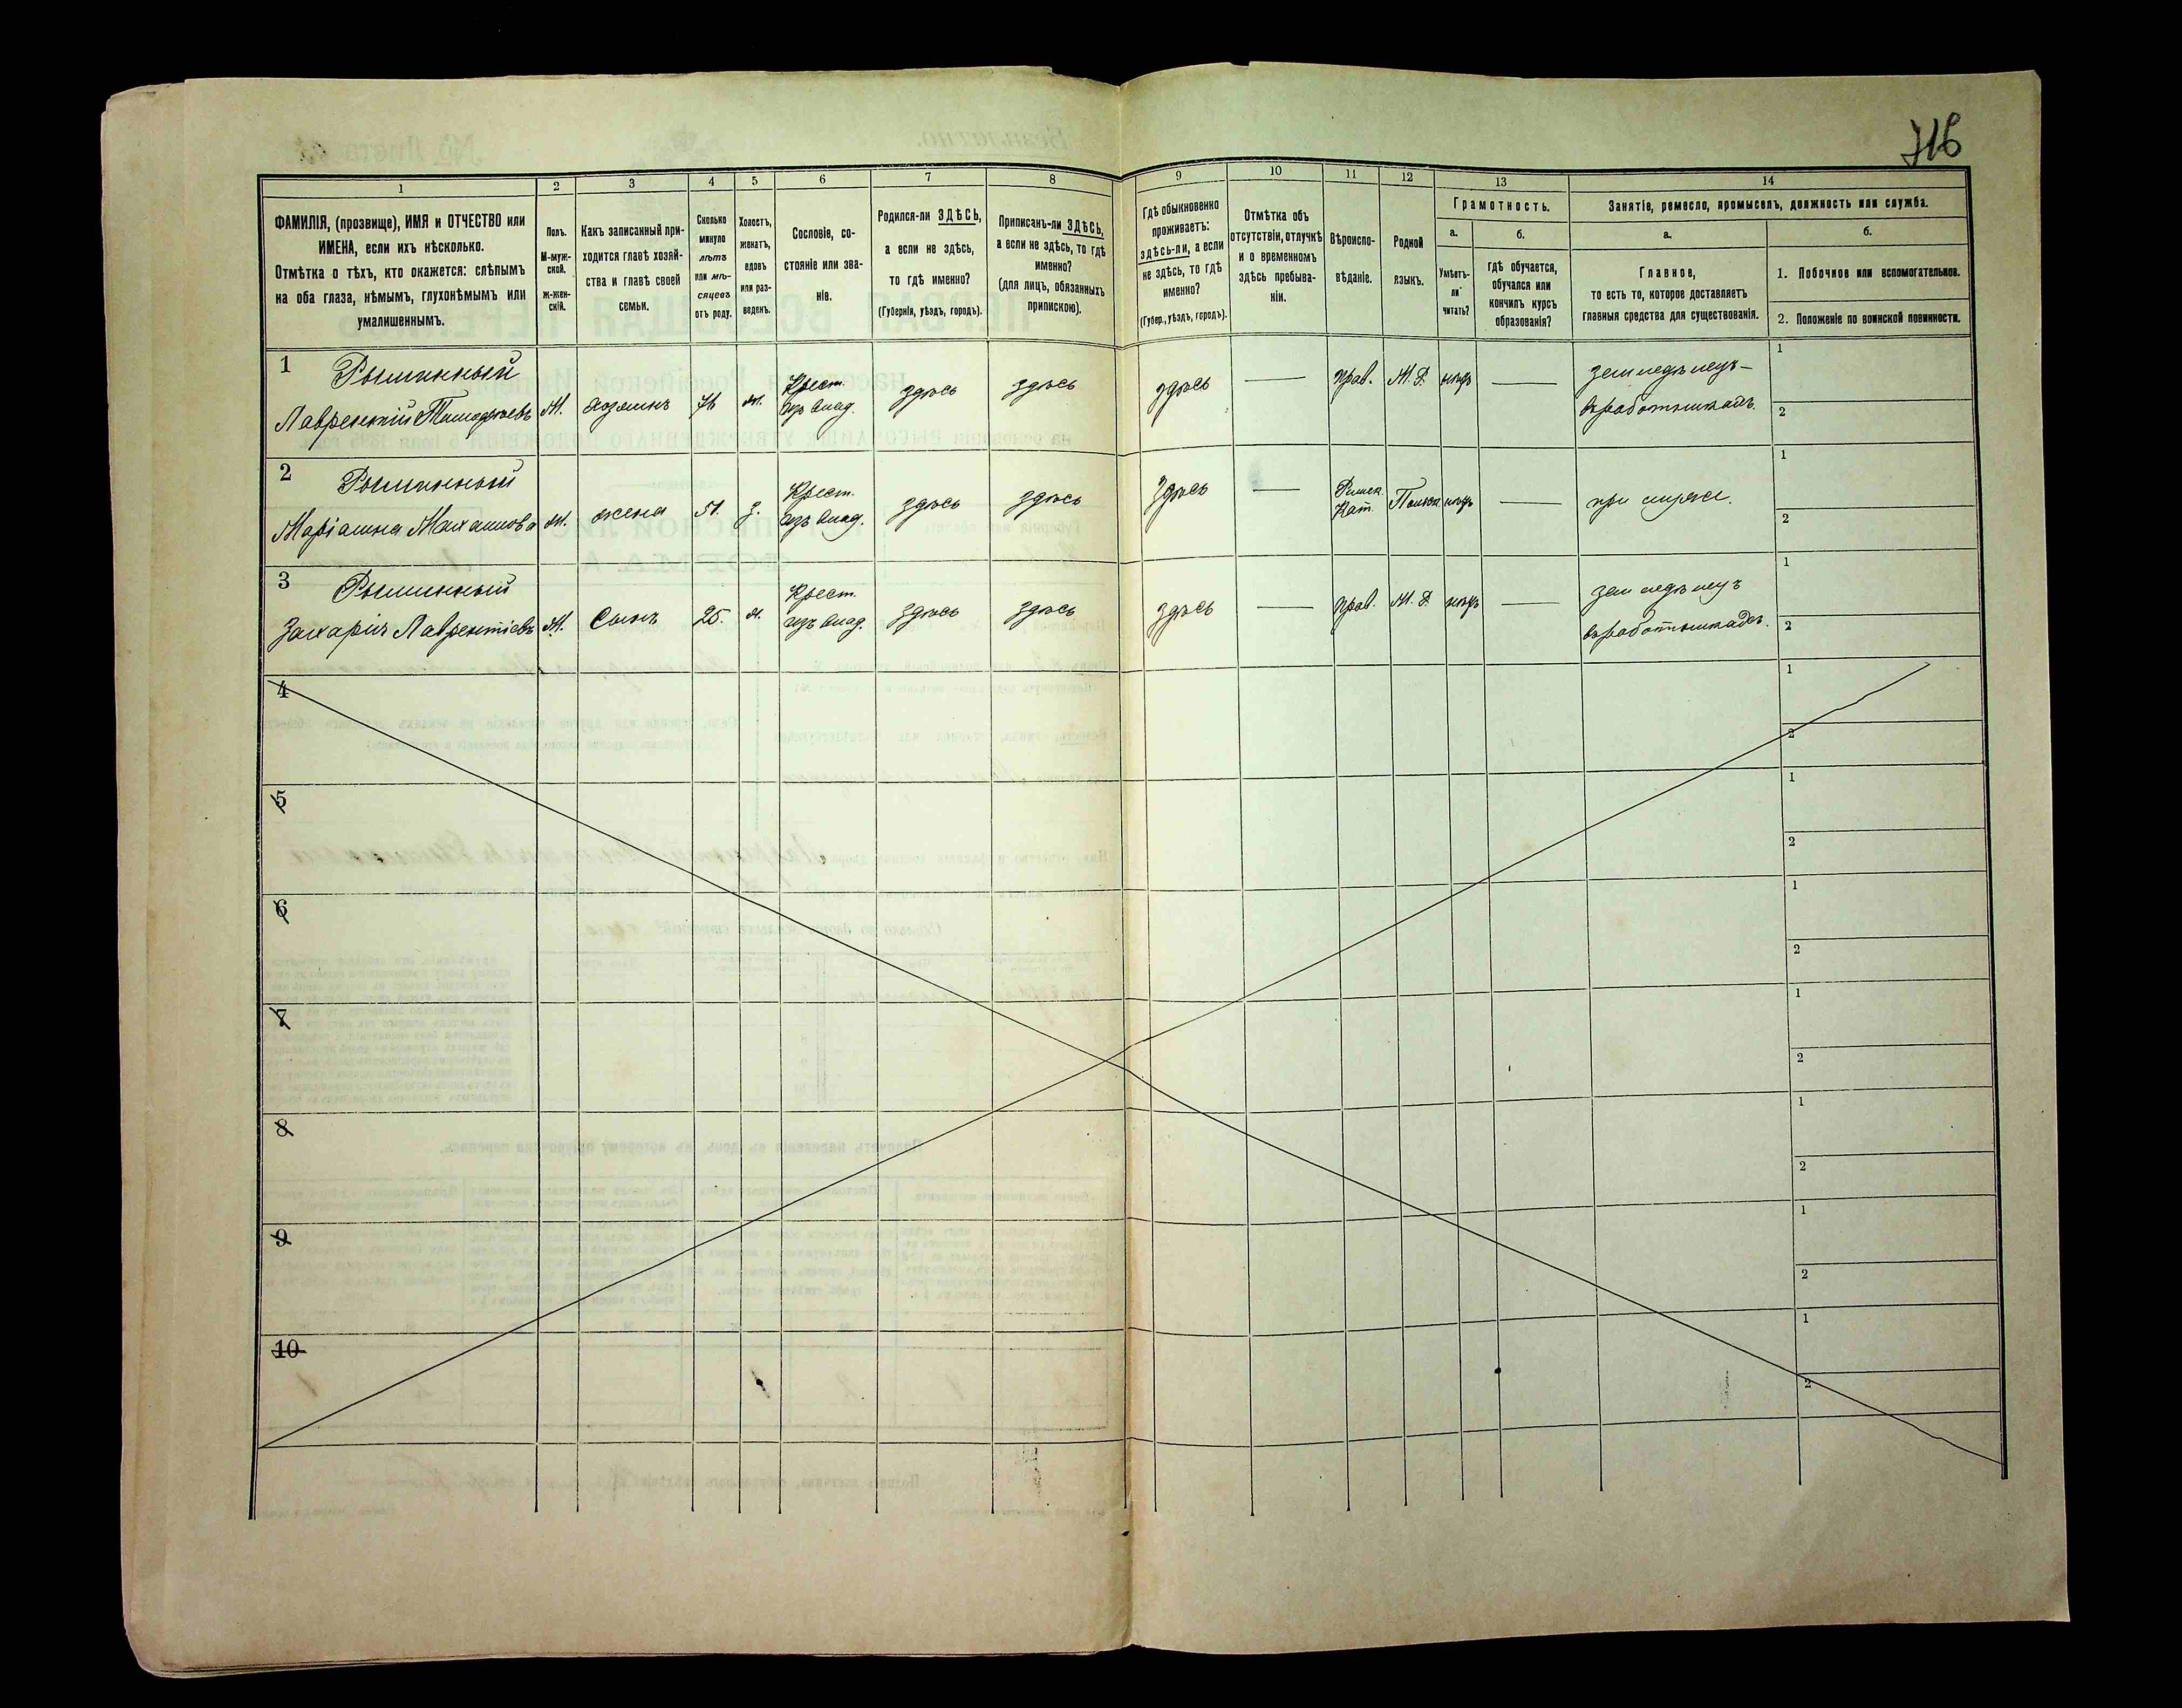 716
1
2
3
4
5
6
7
8
9
10
11
12
13
14
ФАМИЛІЯ, (прозвище), ИМЯ и ОТЧЕСТВО или
ИМЕНА, если ихъ нѣсколько.
Отмѣтка о тѣхъ, кто окажется: слѣпымъ
на оба глаза, нѣмымъ, глухонѣмымъ или
умалишеннымъ.
Полъ.
М-муж-
ской.
Ж-жен-
скій.
Какъ записанный при-
ходится главѣ хозяй-
ства и главѣ своей
семьи.
Сколько
минуло
лѣтъ
или мѣ-
сяцевъ
отъ роду.
Холостъ,
женатъ,
вдовъ
или раз-
веденъ.
Сословіе, со-
стояніе или зва-
ніе.
Родился-ли ЗДѢСЬ,
а если не здѣсь,
то гдѣ именно?
(Губернія, уѣздъ, городъ).
Приписанъ-ли ЗДѢСЬ,
а если не здѣсь, то гдѣ
именно?
(для лицъ, обязанныхъ
припискою).
Гдѣ обыкновенно
проживаетъ:
здѣсь-ли, а если
не здѣсь, то гдѣ
именно?
(Губер., уѣздъ, городъ).
Отмѣтка объ
отсутствіи, отлучкѣ
и о временномъ
здѣсь пребыва-
ніи.
Вѣроиспо-
вѣданіе.
Родной
языкъ.
Грамотность.
а.
Умѣетъ-
ли
читать?
б.
гдѣ обучается,
обучался или
кончилъ курсъ
образованія?
Занятіе, ремесло, промыселъ, должность или служба.
а.
Главное,
то есть то, которое доставляетъ
главныя средства для существованія.
б.
1. Побочное или вспомогательное.
2. Положеніе по воинской повинности.
1
Лаврентій М. хозяинъ 71 ж. Крест. изъ влад. здѣсь здѣсь здѣсь — прав. М. Р. нѣтъ — земледѣлецъ—
въ работникахъ.
1
2
2
Маріанна ж. жена 51. з. Крест. изъ влад. здѣсь здѣсь Здѣсь — Римск. Кат. Польск нѣтъ — при мужѣ.
1
2
3
Захарій Лаврентіевъ М. Сынъ 25. Крест. изъ влад. здѣсь здѣсь здѣсь — прав. М. Р. нѣтъ — земледѣлецъ
въ работникахъ.
1
2
4
1
2
5
1
2
6
1
2
7
1
2
8
1
2
9
1
2
10
1
2